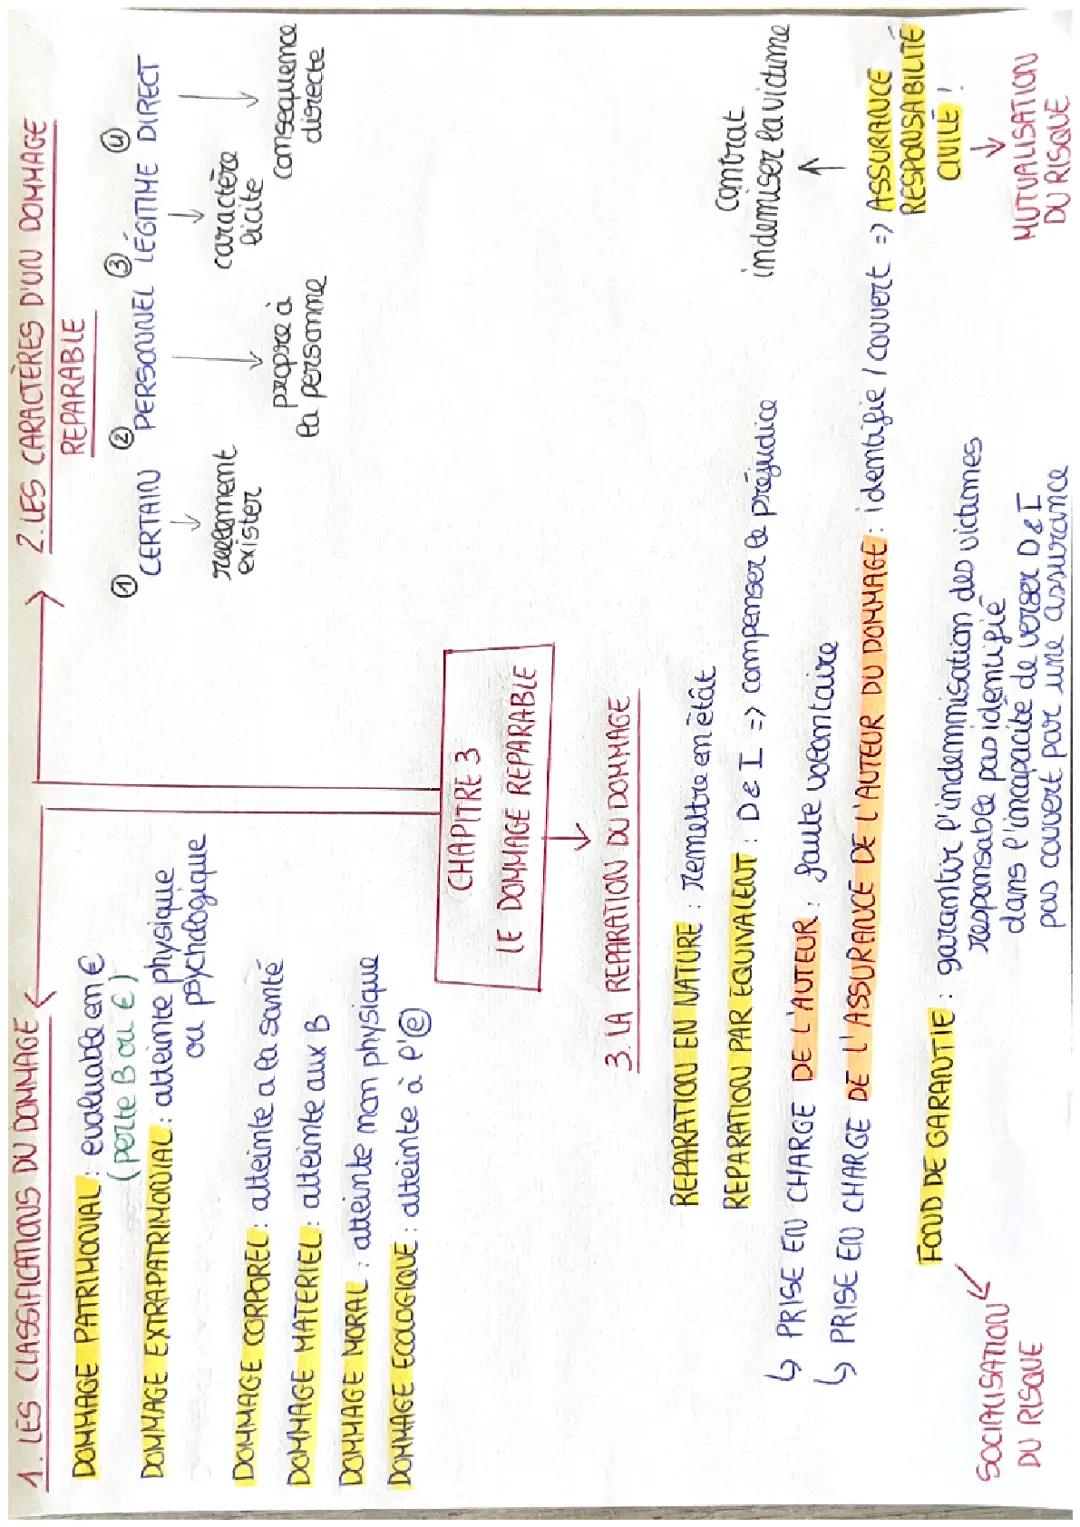 1. LES CLASSIFICATIONS DU DOMMAGE
DOMMAGE PATRIMONIAL : evaluable en €
(perte B ou €)
DOMMAGE EXTRAPATRIMONIAL : atteinte physique
ou psychologique
DOMMAGE CORPOREL : atteinte a la santé
DOMMAGE MATERIEL : atteinte aux B
DOMMAGE MORAL : atteinte non physique
DOMMAGE ECOLOGIQUE : atteinte à l'@
2. LES CARACTÈRES D'UN DOMMAGE
REPARABLE
① ② ③ ④
CERTAIN PERSONNEL LÉGITIME DIRECT
reelement
exister
propre à
la personne
caractère
licite
consequence
directe
CHAPITRE 3
LE DOMMAGE REPARABLE
3. LA REPARATION DU DOMMAGE
REPARATION EN NATURE : remettre en état
REPARATION PAR EQUIVALENT : D & I => compenser le préjudice
↳ PRISE EN CHARGE DE L'AUTEUR : faute volontaire
contrat
indemiser la victime
↳ PRISE EN CHARGE DE L'ASSURANCE DE L'AUTEUR DU DOMMAGE : identifie / couvert => ASSURANCE
RESPONSABILITÉ
CIVILE !
MUTUALISATION
DU RISQUE
FOND DE GARANTIE : garantir l'indemnisation des victimes
responsable pas identifié
dans l'incapacité de verser D & I
pas couvert par une assurance
SOCIALISATION
DU RISQUE